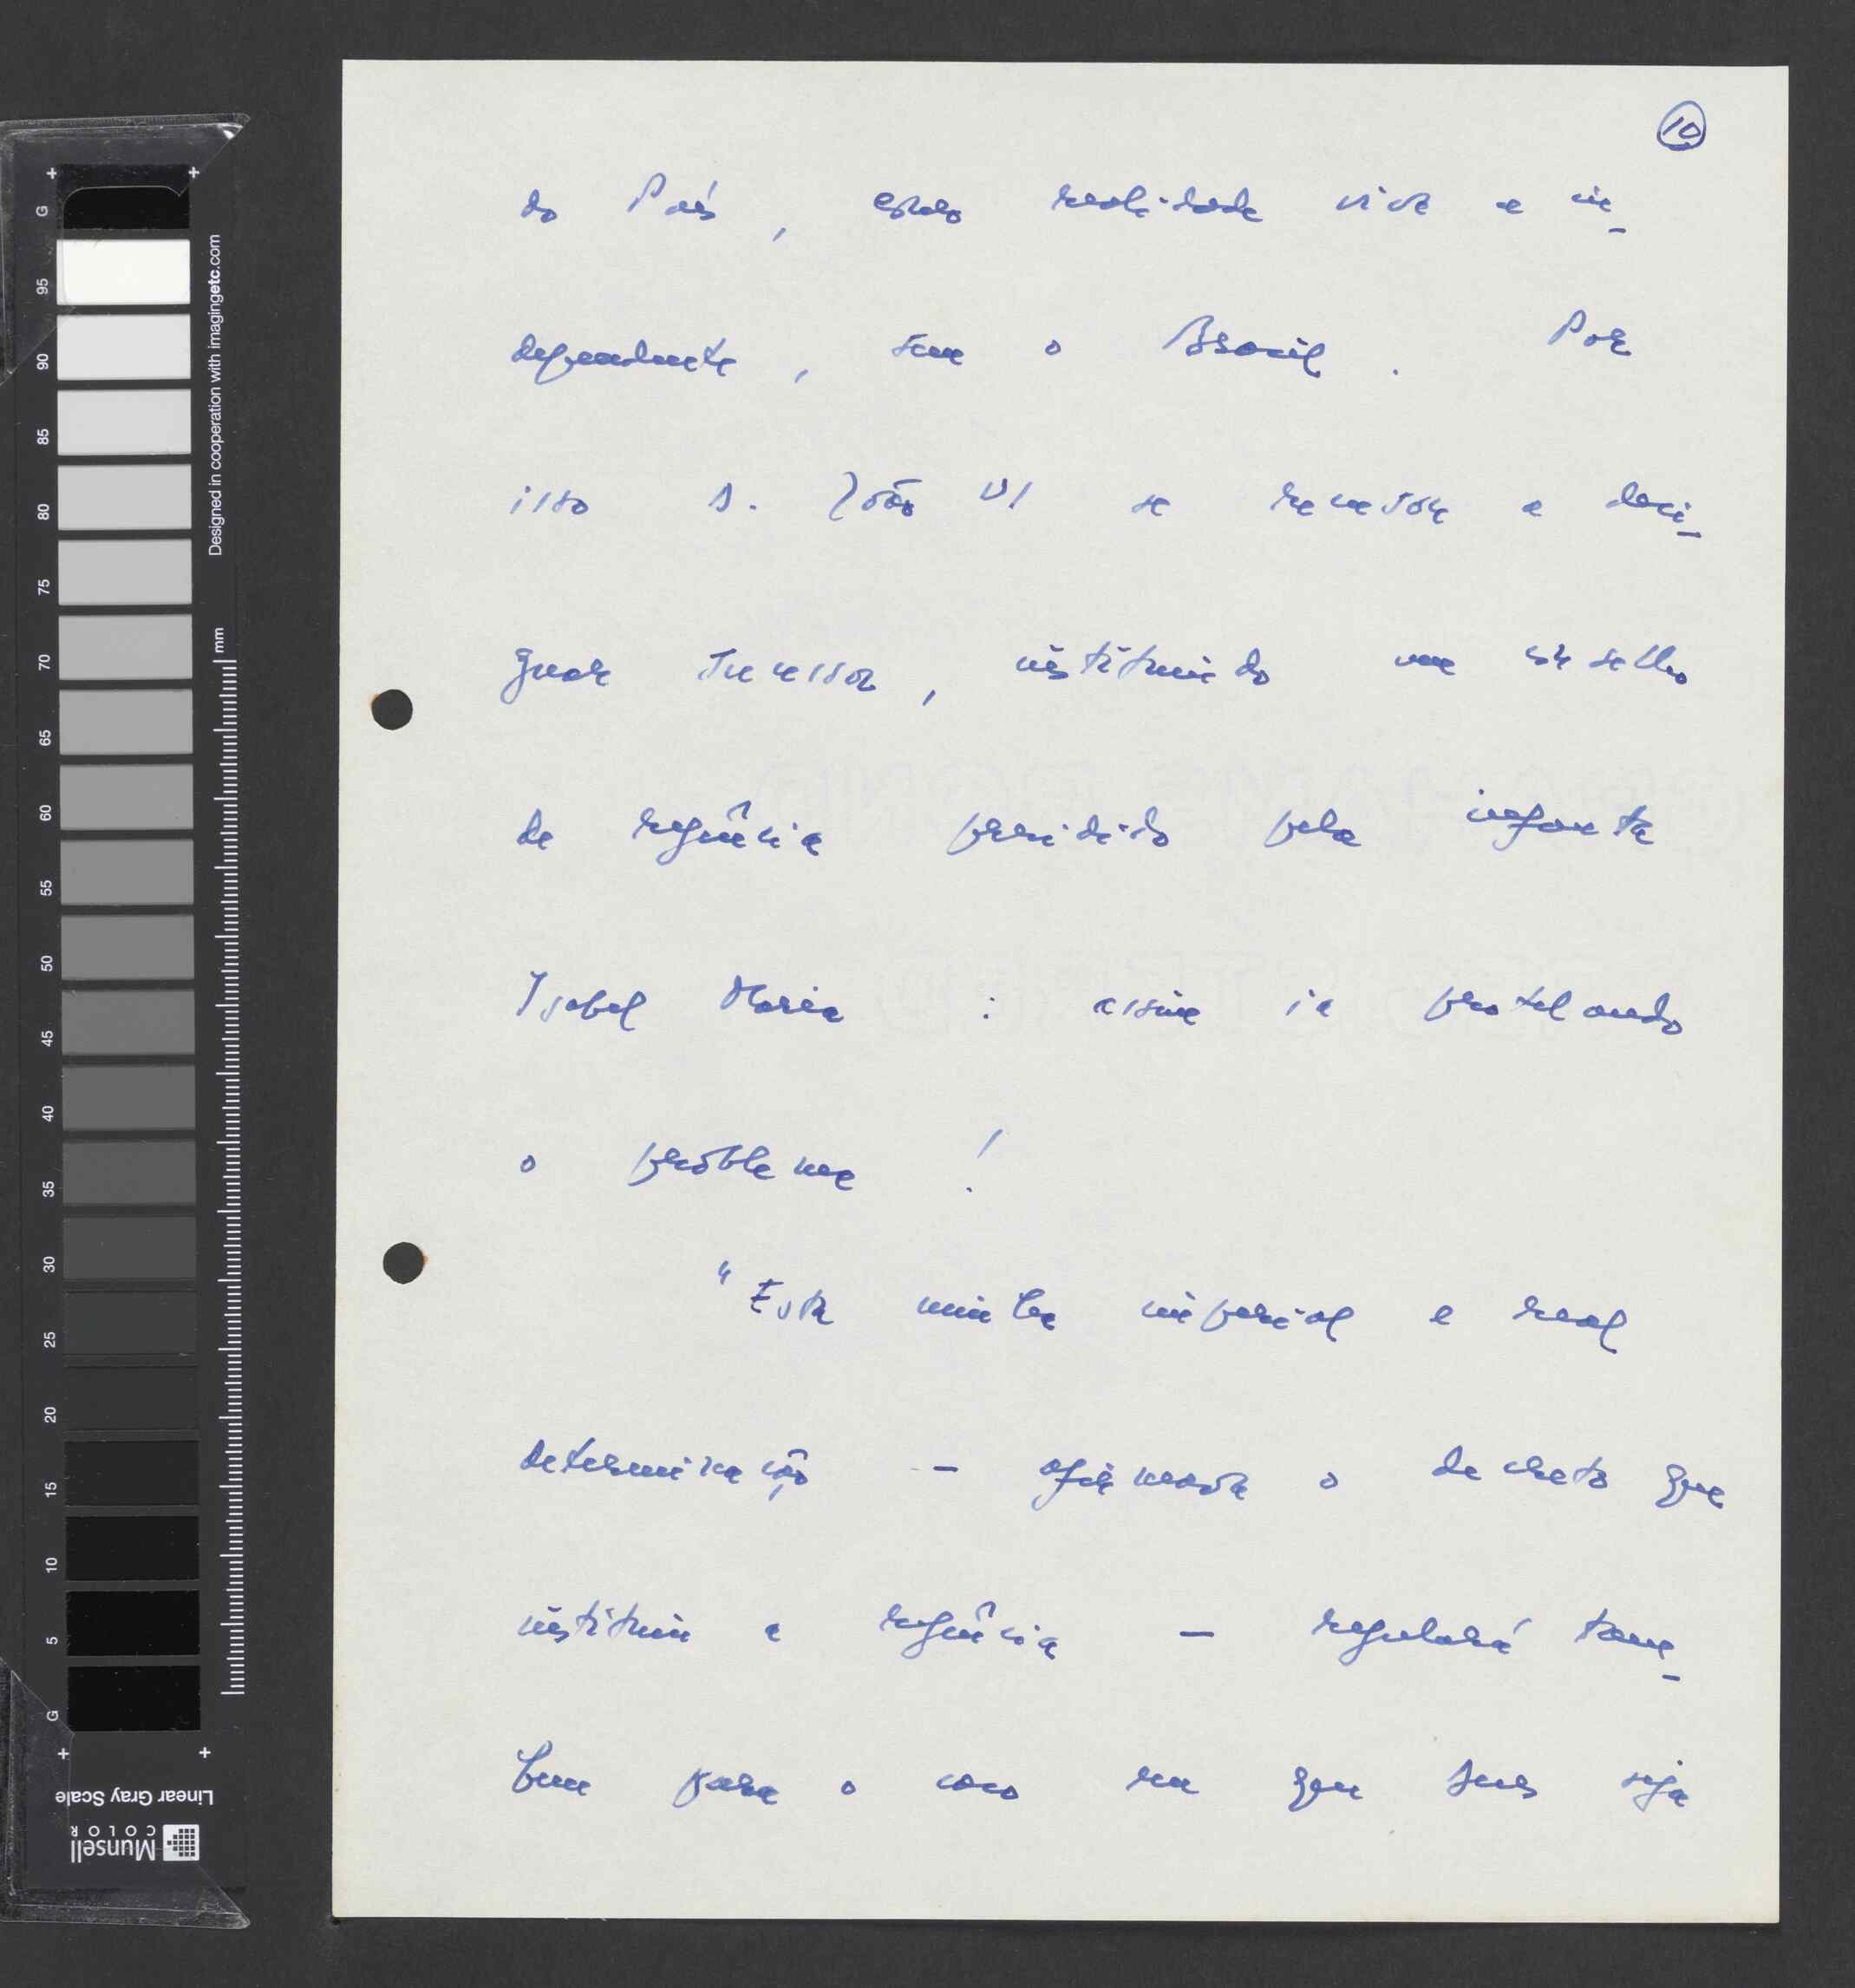 10
do País, como realidade viva e in-
dependente, sem o Brasil. Por
isso D. João VI se recusou a desi-
gnar sucessor, instituindo um conselho
de regência presidido pela infanta
Isabel Maria : assim ia protelando
o problema !
"Esta minha imperial e real
determinação - afirmava o decreto que
instituiu a regência - regulará tam-
bem para o caso em que Deus seja
G 95 90 85 80 75 70 65 60 55 50 45 40 35 30 25 20 15 10 5 G
mm
Designed in cooperation with imagingetc.com
Linear Gray Scale
Munsell
COLOR